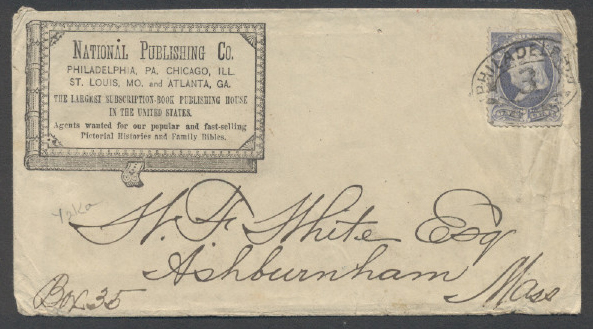 NATIONAL PUBLISHING CO.
PHILADELPHIA, PA. CHICAGO, ILL.
ST. LOUIS, MO. and ATLANTA, GA.
THE LARGEST SUBSCRIPTION-BOOK PUBLISHING HOUSE
IN THE UNITED STATES.
Agents wanted for our popular and fast-selling
Pictorial Histories and Family Bibles.
PHILADELPHIA
W. F. White Esq
Ashburnham
Mass
Box 35